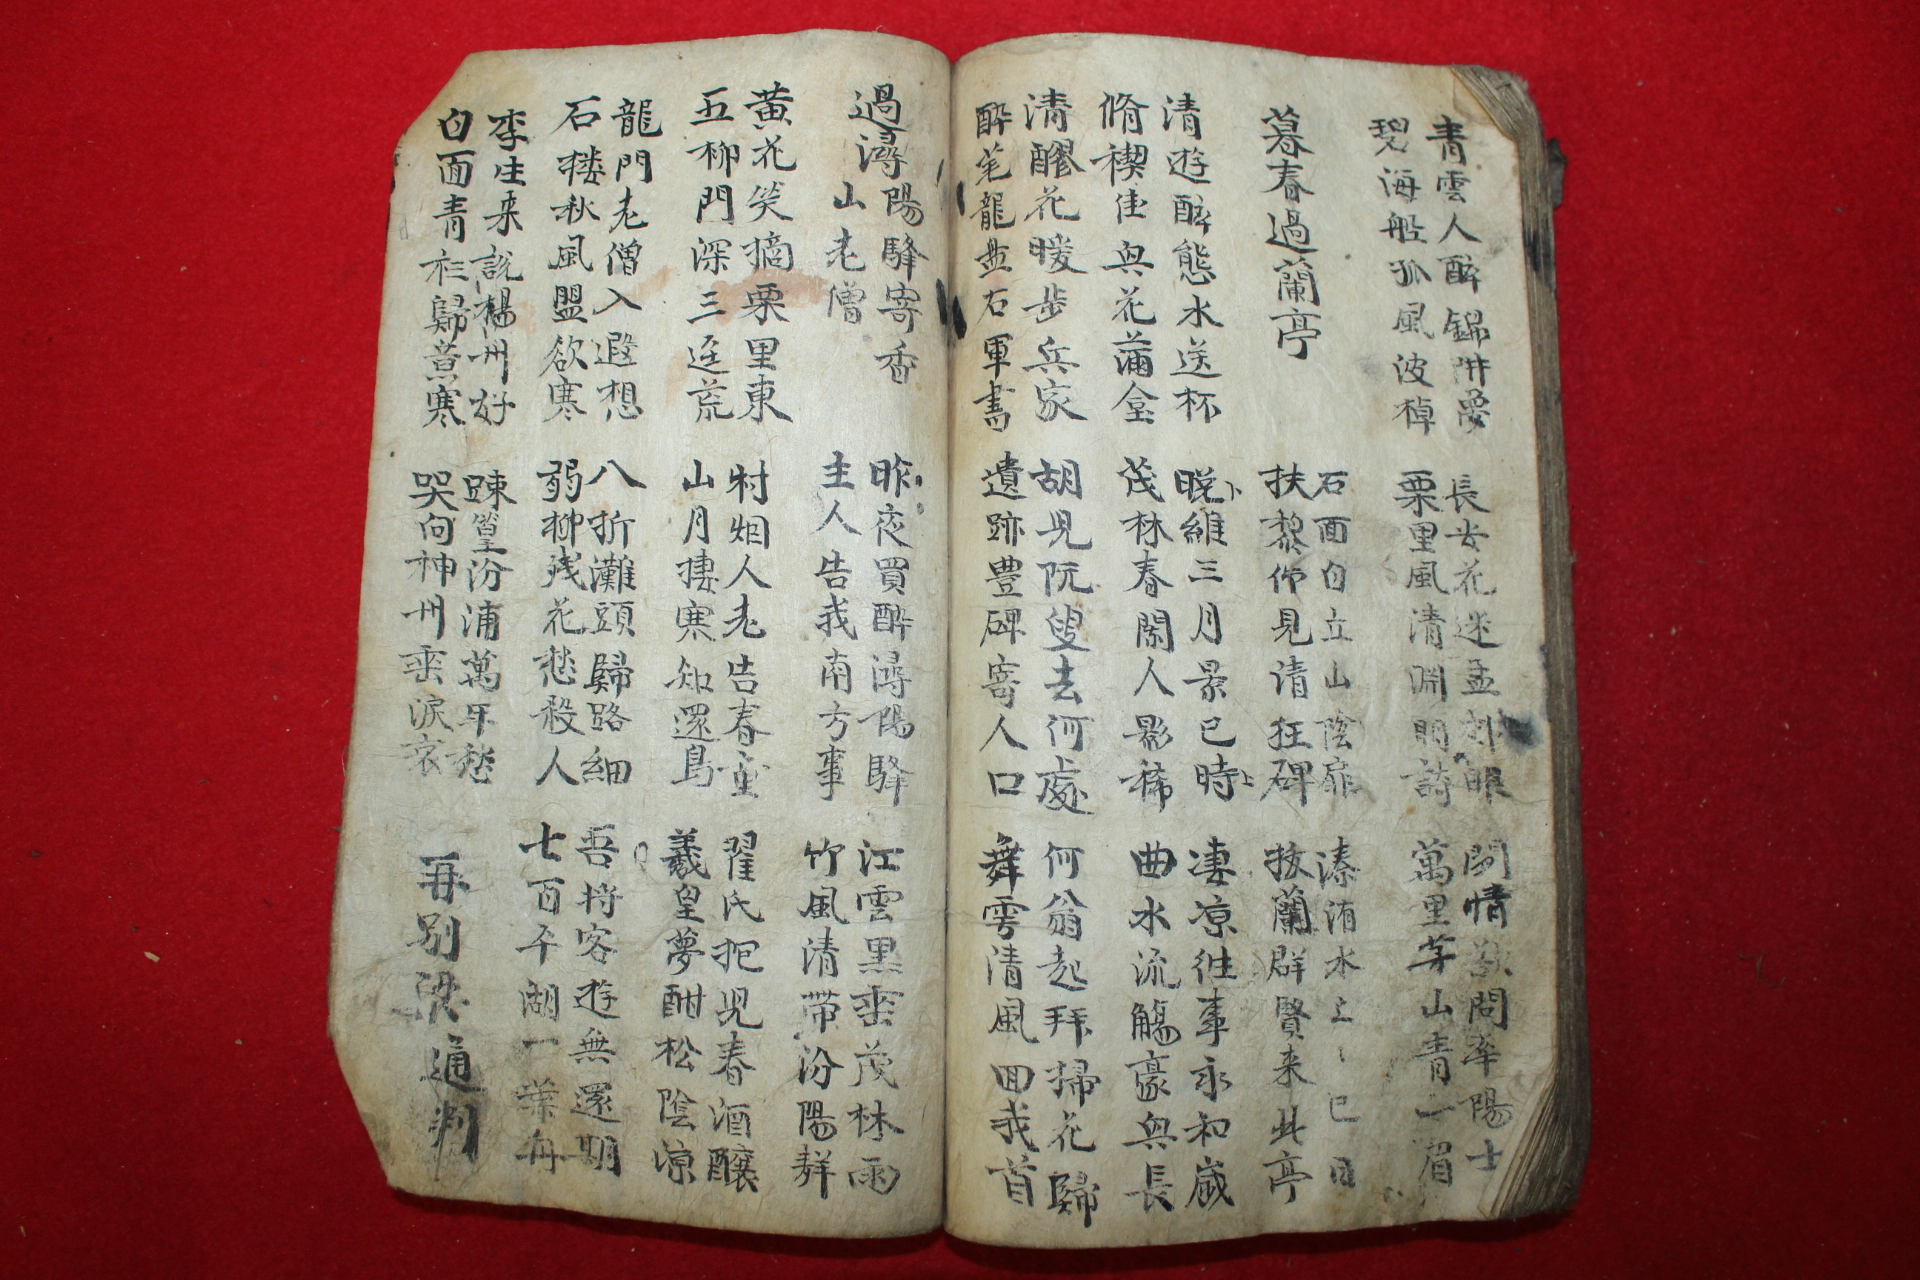 青雲人醉錦阱夢
碧海船孤風波棹
長安花迷孟郊眼
栗里風清淵明詩
閑情欲問牟陽士
萬里芽山青一眉
暮春過蘭亭
石面白立山陰扉
扶藜倚見請狂碑
溱洧水上〻巳日
拔蘭群賢来此亭
清遊醉態水送杯
脩禊佳興花蒲盒
晩維三月景巳時
茂林春閑人影稀
凄凉往事永和歲
曲水流觴豪興長
清醪花暖步兵家
醉筆龍盘右軍書
胡児阮叟去何處
遺跡豊碑寄人口
何翁起拜掃花歸
舞雩清風回我首
過潯陽驛寄香
山老僧
昨夜買醉潯陽驛
主人告我南方事
江雲黒峦茂林雨
竹風清帶汾陽群
黃花笑摘栗里東
五柳門深三逕荒
村烟人老告春童
山月捿寒知還鳥
翟氏抱児春酒釀
羲皇夢酣松陰凉
龍門老僧入遐想
石楼秋風盟欲寒
八折灘頭歸路細
弱柳残花愁殺人
吾将客遊無還期
七百平湖一葉舟
李生来說楊州好
白面青衫歸寒
踈篁汾浦萬年愁
哭向神州峦淚哀
再別梁通判